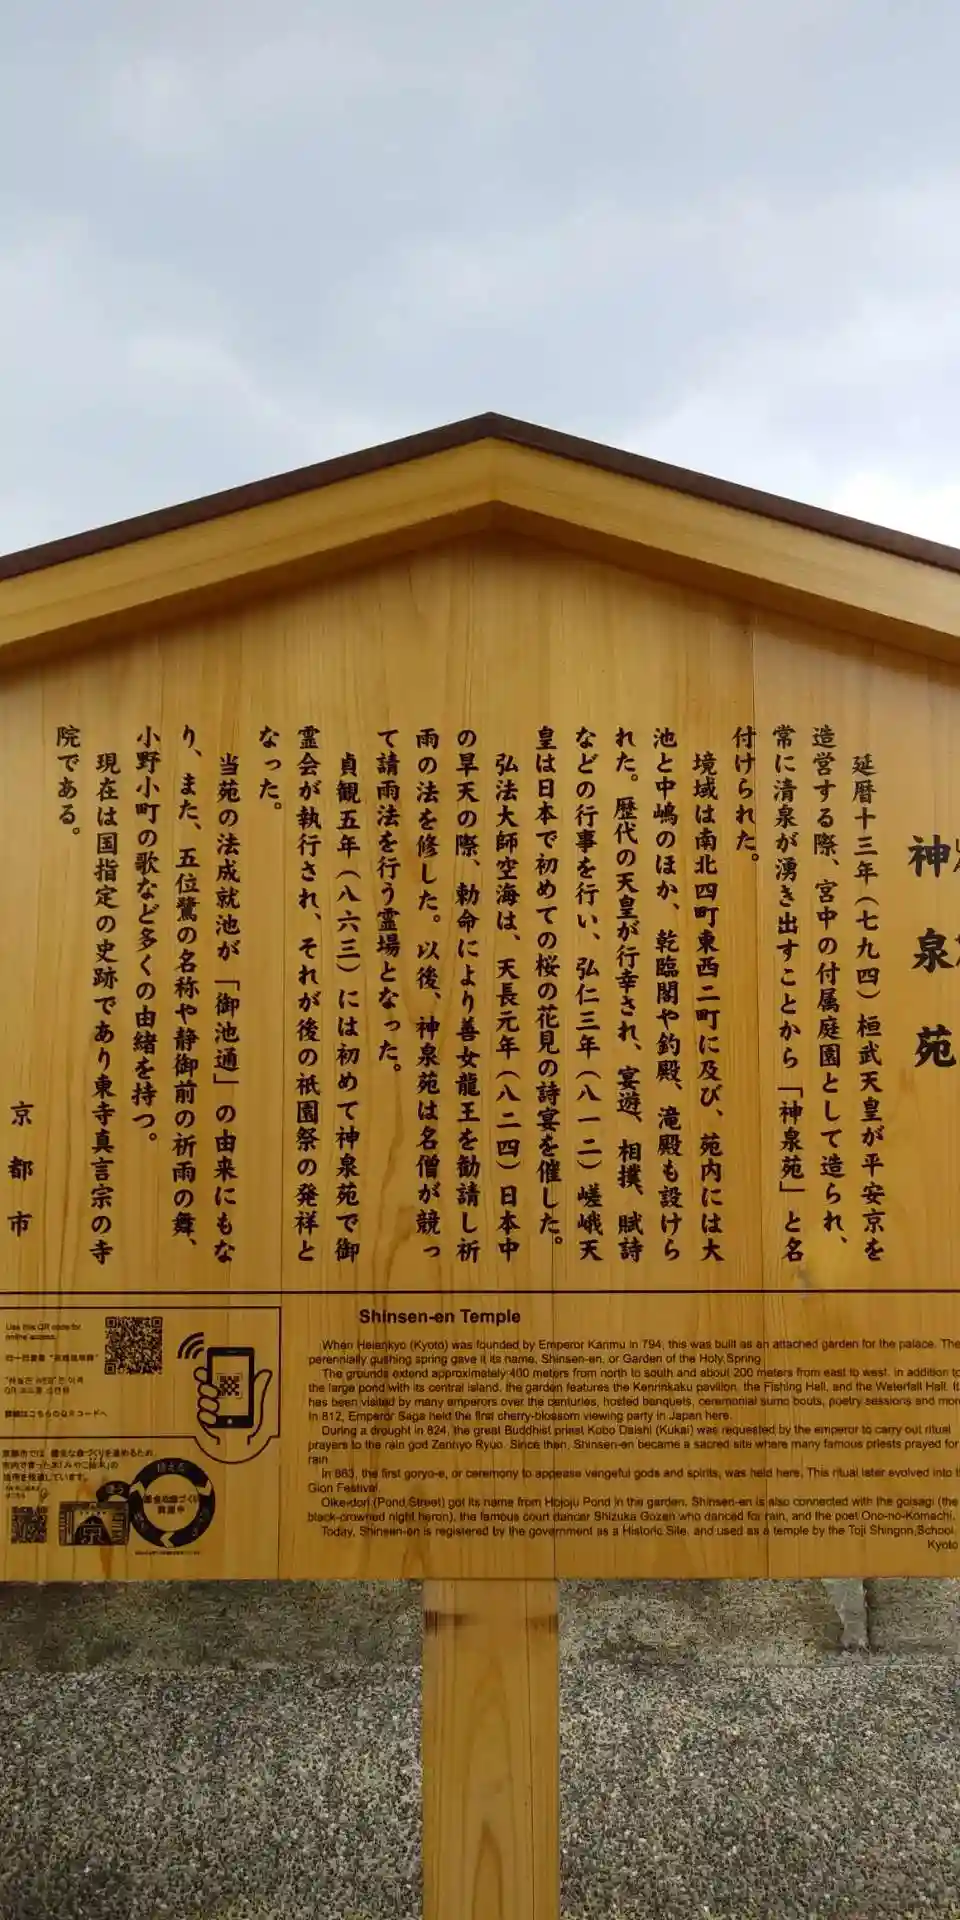 神泉苑
延暦十三年(七九四)桓武天皇が平安京を
造営する際、宮中の付属庭園として造られ、
常に清泉が湧き出すことから「神泉苑」と名
付けられた。
境域は南北四町東西二町に及び、苑内には大
池と中嶋のほか、乾臨閣や釣殿、滝殿も設けら
れた。歴代の天皇が行幸され、宴遊、相撲、賦詩
などの行事を行い、弘仁三年(八一二)嵯峨天
皇は日本で初めての桜の花見の詩宴を催した。
弘法大師空海は、天長元年(八二四)日本中
の旱天の際、勅命により善女龍王を勧請し祈
雨の法を修した。以後、神泉苑は名僧が競っ
て請雨法を行う霊場となった。
貞観五年(八六三)には初めて神泉苑で御
霊会が執行され、それが後の祇園祭の発祥と
なった。
当苑の法成就池が「御池通」の由来にもな
り、また、五位鷺の名称や静御前の祈雨の舞、
小野小町の歌など多くの由緒を持つ。
現在は国指定の史跡であり東寺真言宗の寺
院である。
京都市
Shinsen-en Temple
When Heiankyo (Kyoto) was founded by Emperor Kanmu in 794, this was built as an attached garden for the palace. The
perennially gushing spring gave it its name, Shinsen-en, or Garden of the Holy Spring
The grounds extend approximately 400 meters from north to south and about 200 meters from east to west. In addition to
the large pond with its central island, the garden features the Kenrinkaku pavilion, the Fishing Hall, and the Waterfall Hall. It
has been visited by many emperors over the centuries, hosted banquets, ceremonial sumo bouts, poetry sessions and mor
In 812, Emperor Saga held the first cherry-blossom viewing party in Japan here.
During a drought in 824, the great Buddhist priest Kobo Daishi (Kukai) was requested by the emperor to carry out ritual
prayers to the rain god Zennyo Ryuo. Since then, Shinsen-en became a sacred site where many famous priests prayed for
rain
In 863, the first goryo-e, or ceremony to appease vengeful gods and spirits, was held here. This ritual later evolved into t
Gion Festival.
Oike-dori (Pond Street) got its name from Hojoju Pond in the garden. Shinsen-en is also connected with the goisagi (the
black-crowned night heron), the famous court dancer Shizuka Gozen who danced for rain, and the poet Ono-no-Komachi.
Today, Shinsen-en is registered by the government as a Historic Site, and used as a temple by the Toji Shingon School.
Kyoto
Use this QR code for
online access.
詳細はこちらのQRコードへ
京都市では、健全な森づくりを進めるため、
市内で育った木「みやこ杣木」の
活用を推進しています。